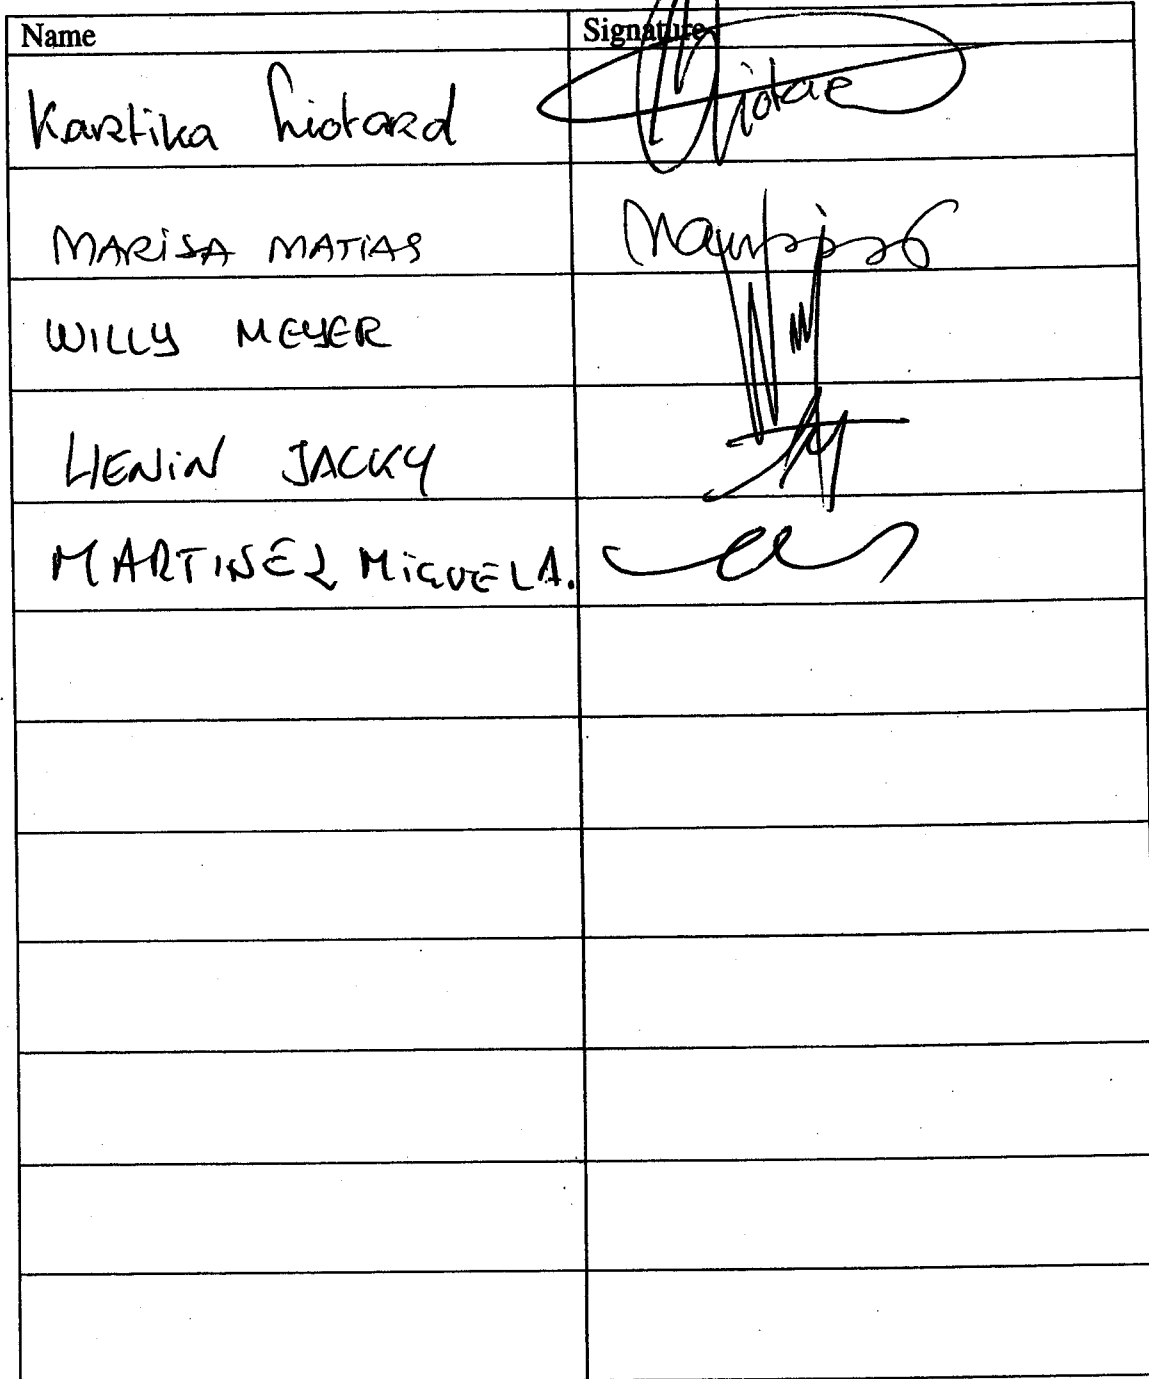 Name Signature
Kartika Liotard
MARISA MATIAS
WILLY MEYER
HENIN JACKY
MARTINEZ MIGUEL A.